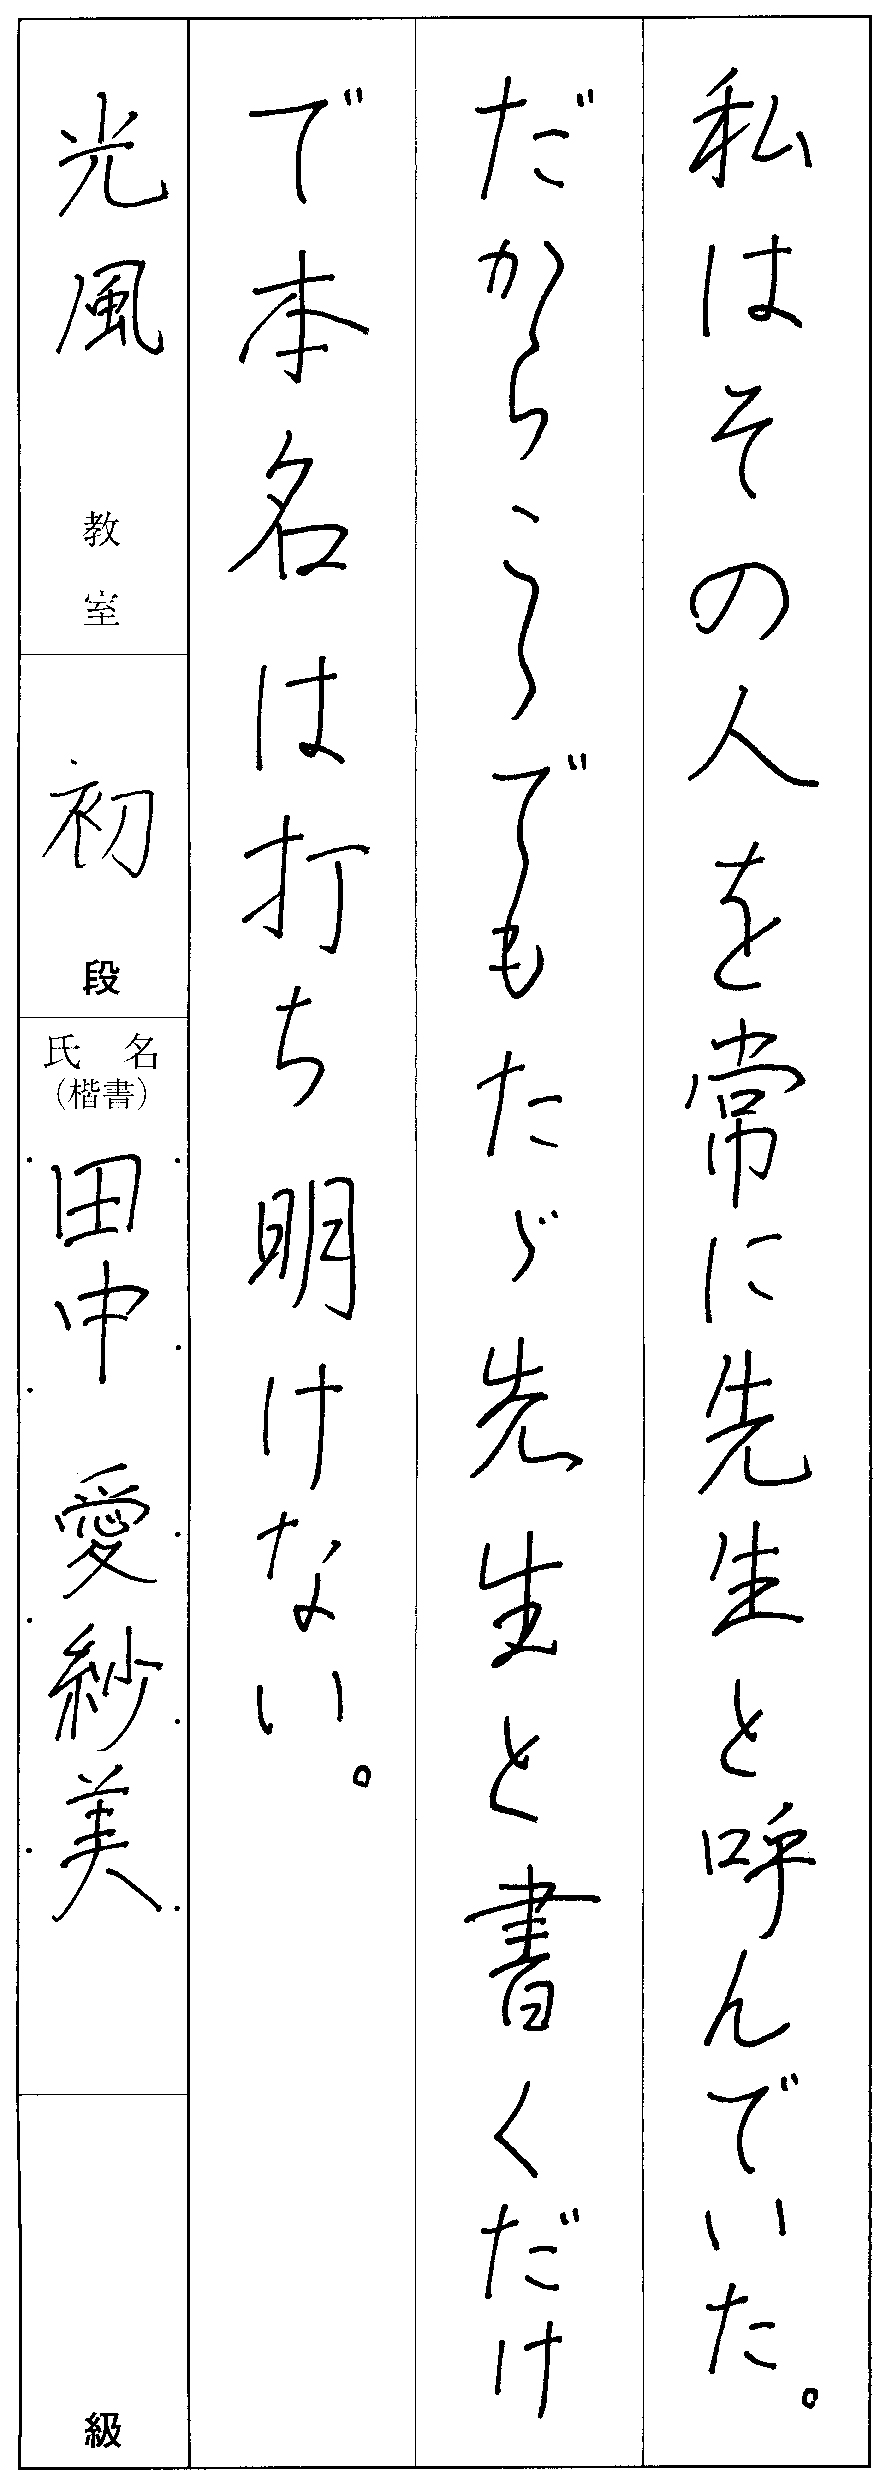 私はその人を常に先生と呼んでいた。
だからこゝでもたゞ先生と書くだけ
で本名は打ち明けない。
光風 教室
初 段
氏名
(楷書)
田中 愛紗美
級